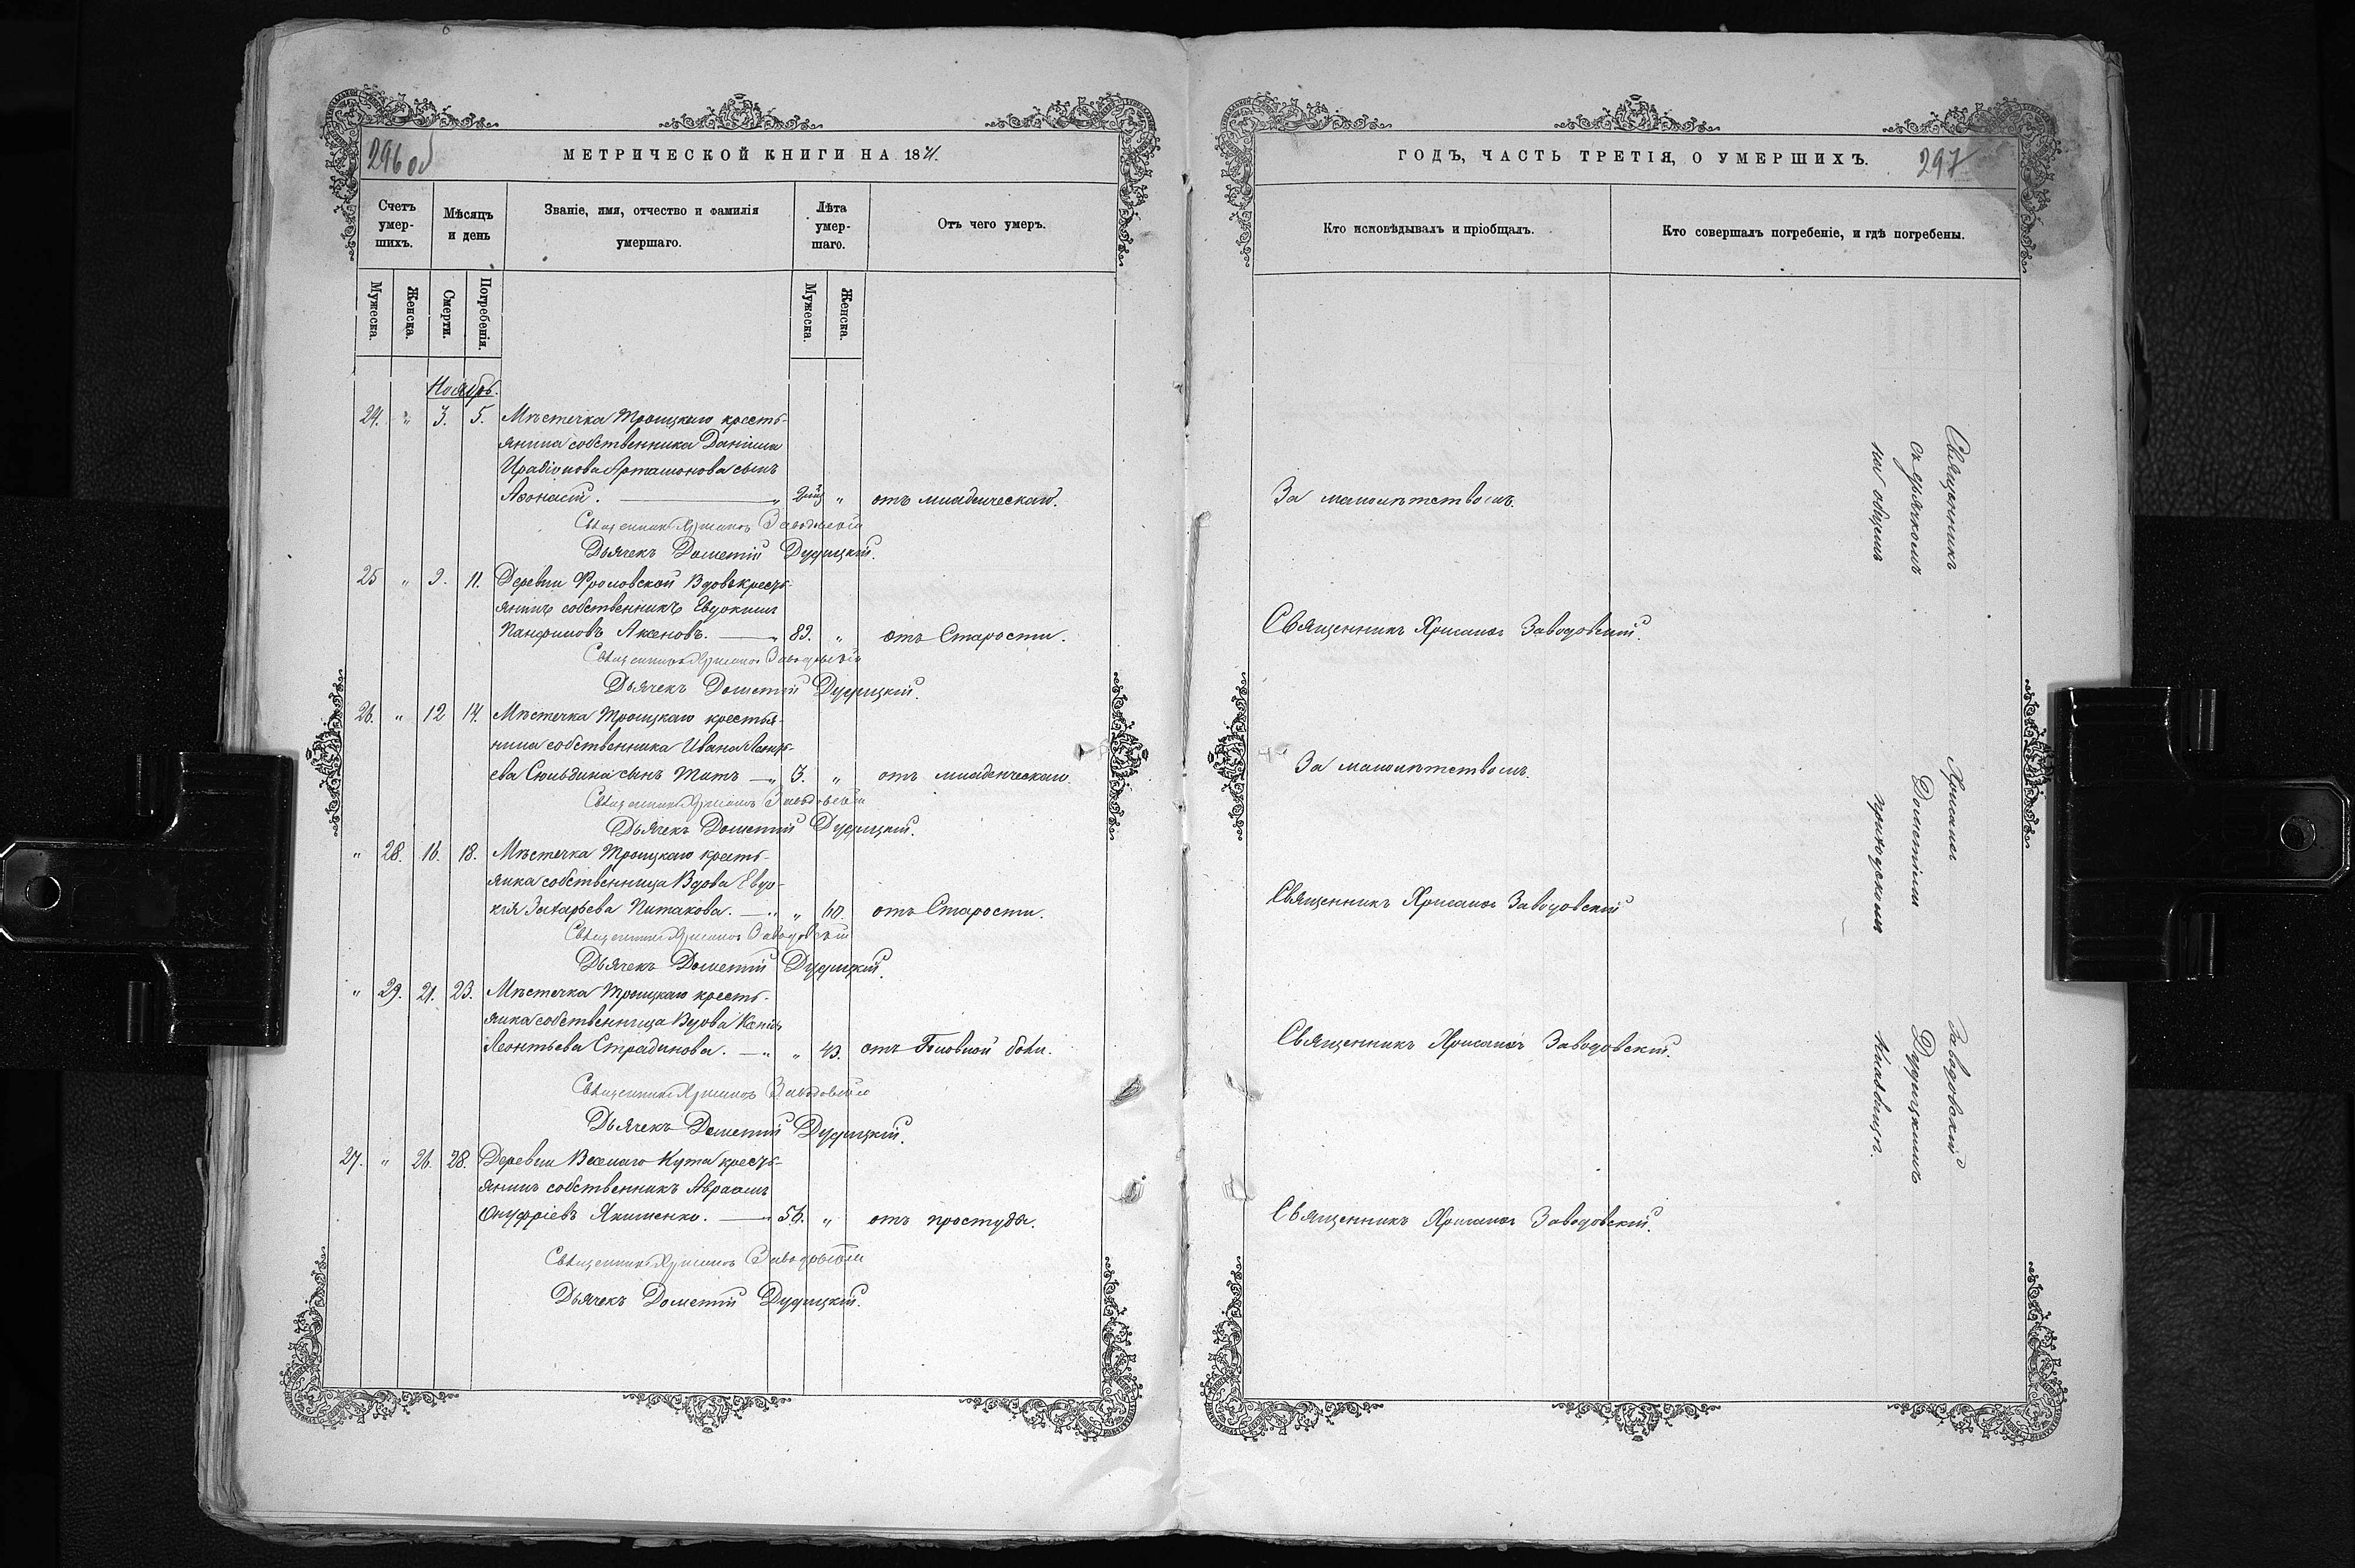 296 об
МЕТРИЧЕСКОЙ КНИГИ НА 1871.
Счетъ умер-шихъ.
Мѣсяцъ и день
Званіе, имя, отчество и фамилія умершаго.
Лѣта умер-шаго.
Отъ чего умеръ.
Мужеска.
Женска.
Смерти.
Погребенія.
Мужеска.
Женска.
Ноябрь.
24. " 3. 5. Мѣстечка Троицкаго кресть-
янина собственника Даніила
Ирадіонова Артамонова сынъ
Аѳонасій. " 2 " отъ младенческаго.
Священникъ Хрисанѳъ Заводовскій
Дьячекъ Дометій Дудицкій.
25 " 9. 11. Деревни Фроловской Вдовъ кресть-
янинъ собственникъ Евдокимъ
Панфиловъ Аксеновъ. " 89. " отъ Старости.
Священникъ Хрисанѳъ Заводовскій
Дьячекъ Дометій Дудицкій.
26. " 12 14. Мѣстечка Троицкаго крестья-
нина собственника Ивана
сынъ Титъ " 3. " отъ младенческаго.
Священникъ Хрисанѳъ Заводовскій
Дьячекъ Дометій Дудицкій.
" 28. 16. 18. Мѣстечка Троицкаго кресть-
янка собственница Вдова Евдо-
кія Захарьева Питакова. " " 60. отъ Старости.
Священникъ Хрисанѳъ Заводовскій
Дьячекъ Дометій Дудицкій.
" 29. 21. 23. Мѣстечка Троицкаго кресть-
янка собственница Вдова Ксенія
Леонтьева Страдинова. " " 43. отъ Головной боли.
Священникъ Хрисанѳъ Заводовскій
Дьячекъ Дометій Дудицкій.
27. " 26. 28. Деревни Веселаго Кута кресть-
янинъ собственникъ Авраамъ
Онуфріевъ Якименко. " 56. " отъ простуды.
Священникъ Хрисанѳъ Заводовскій
Дьячекъ Дометій Дудицкій.
ГОДЪ, ЧАСТЬ ТРЕТІЯ, О УМЕРШИХЪ.
297
Кто исповѣдывалъ и пріобщалъ.
Кто совершалъ погребеніе, и гдѣ погребены.
За малолѣтствомъ.
Священникъ Хрисанѳъ Заводовскій.
За малолѣтствомъ.
Священникъ Хрисанѳъ Заводовскій
Священникъ Хрисанѳъ Заводовскій.
Священникъ Хрисанѳъ Заводовскій.
Священникъ Хрисанѳъ Заводовскій
съ дьячкомъ Дометіемъ Дудицкимъ
на общемъ приходскомъ кладбищѣ.